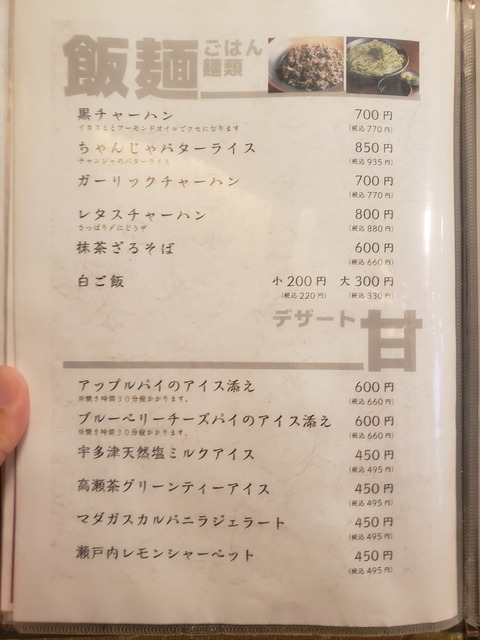 飯麺 ごはん
麺類
黒チャーハン 700円
イカスミとアーモンドオイルでクセになります (税込770円)
ちゃんじゃバターライス 850円
チャンジャのバターライス (税込935円)
ガーリックチャーハン 700円
(税込770円)
レタスチャーハン 800円
さっぱり〆にどうぞ (税込880円)
抹茶ざるそば 600円
(税込660円)
白ご飯 小200円 大300円
(税込220円) (税込330円)
デザート 甘
アップルパイのアイス添え 600円
※焼き時間30分程かかります。 (税込660円)
ブルーベリーチーズパイのアイス添え 600円
※焼き時間30分程かかります。 (税込660円)
宇多津天然塩ミルクアイス 450円
(税込495円)
高瀬茶グリーンティーアイス 450円
(税込495円)
マダガスカルバニラジェラート 450円
(税込495円)
瀬戸内レモンシャーベット 450円
(税込495円)